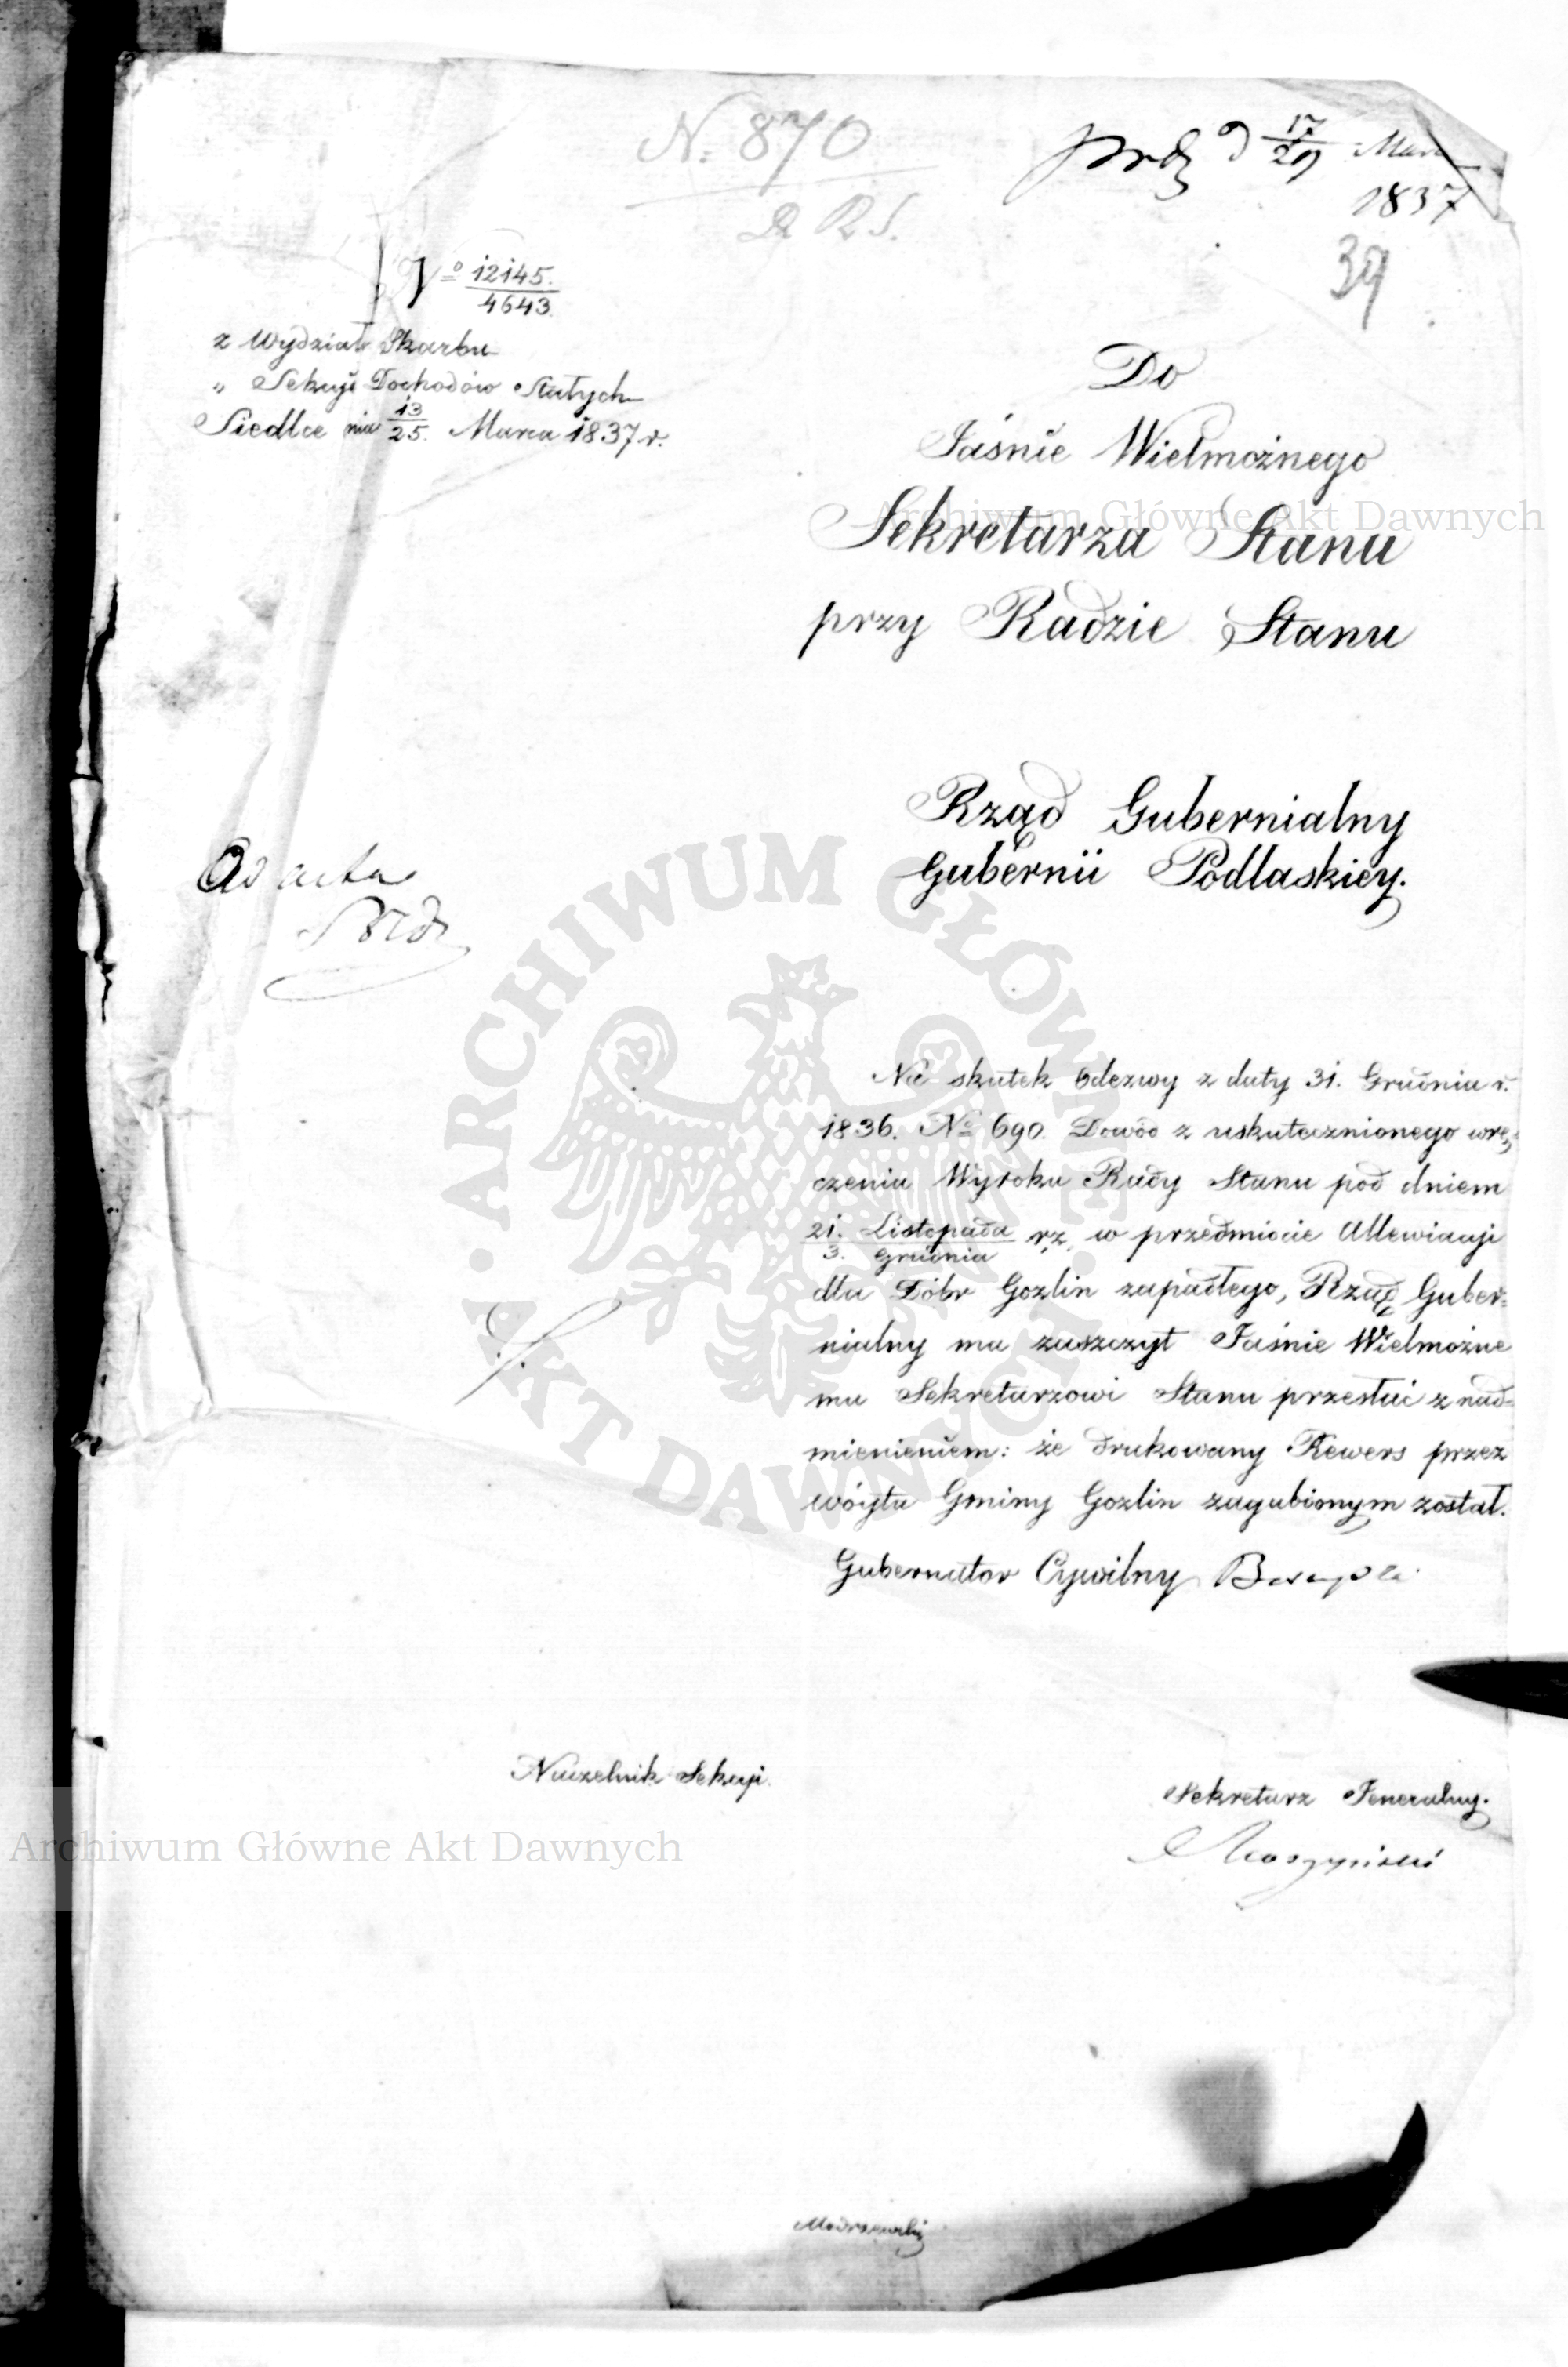 N. 870
R S.
prdz d 17/29 Mar
1837
39
No 12145./4643.
z Wydziału Skarbu
" Sekcyi Dochodów Stałych
Siedlce nia 13/25. Marca 1837 r.
Do
Jaśnie Wielmożnego
Sekretarza Stanu
przy Radzie Stanu
Rząd Gubernialny
Gubernii Podlaskiey.
Ad acta
Na skutek Odezwy z daty 31. Grudnia r.
1836. No 690. Dowód z uskutecznionego wrę=
czenia Wyroku Rady Stanu pod dniem
21. Listopada/3. Grudnia r.z. w przedmiocie Allewiacyi
dla Dóbr Gozlin zapadłego, Rząd Guber=
nialny ma zaszczyt Jaśnie Wielmożne
mu Sekretarzowi Stanu przesłać z nad=
mienieniem: że drukowany Rewers przez
wóyta Gminy Gozlin zagubionym został.
Gubernator Cywilny
Naczelnik Sekcyi.
Sekretarz Jeneralny.
Modrzewski
Archiwum Główne Akt Dawnych
ARCHIWUM GŁÓWNE AKT DAWNYCH
Archiwum Główne Akt Dawnych